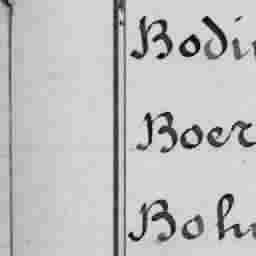 Bodi
Boer
Boh